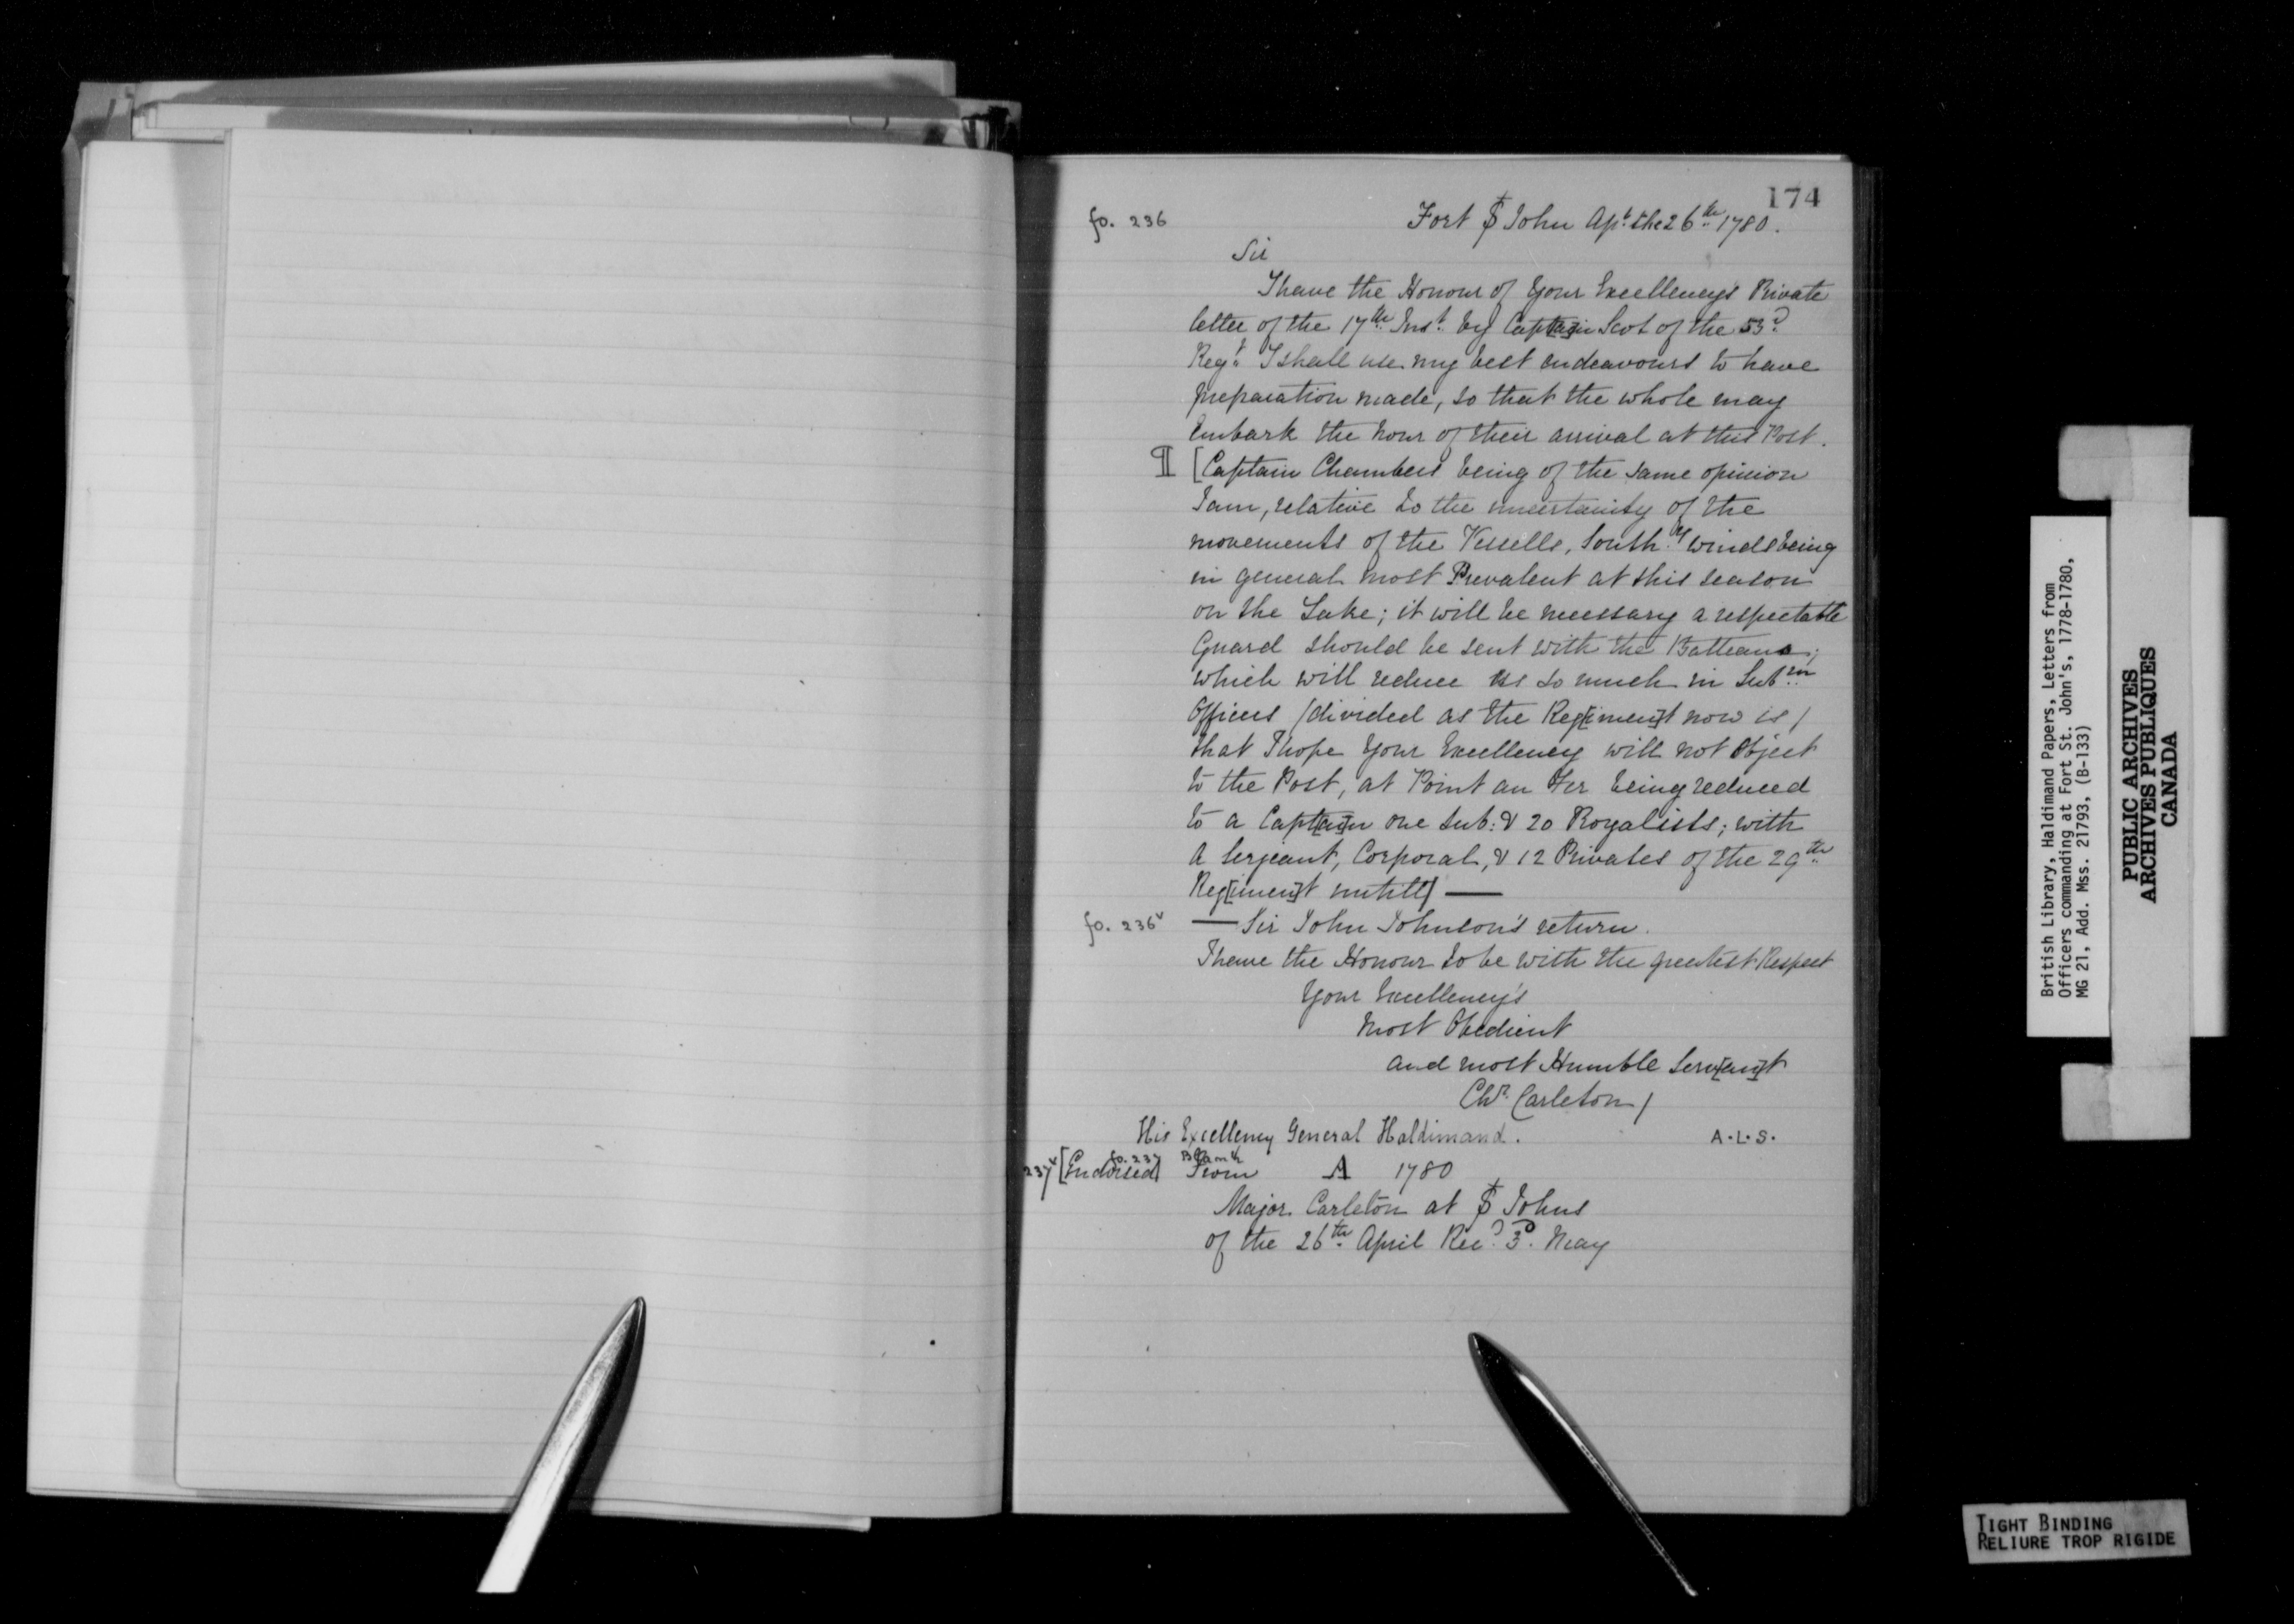 174
fo. 236
Fort St John Apl. the 26th 1780.
Sir
I have the Honour of Your Excellency's Private
letter of the 17th Inst. by Capt[ai]n Scot of the 53d.
Regt. I shall use my best endeavours to have
preparation made, so that the whole may
Embark the hour of their arrival at this Post.
¶ [Captain Chambers being of the same opinion
I am, relative to the uncertainity of the
movements of the Vessells, South.y winds being
in general most Prevalent at this season
on the Lake; it will be necessary a respectable
Guard should be sent with the Batteaus;
which will reduce us so much in Subn
Officers /divided as the Reg[imen]t now is/
that I hope Your Excellency will not Object
to the Post, at Point au Fer being reduced
to a Capt[ai]n one Sub: & 20 Royalists; with
A Serjeant, Corporal, & 12 Privates of the 29th
Reg[imen]t untill] —
fo. 236v — Sir John Johnson's return.
I have the Honour to be with the greatest Respect
Your Excellency's
Most Obedient
and most Humble Serv[an]t
Chr. Carleton /
His Excellency General Haldimand. A.L.S.
fo. 237 Blank
237v [Endorsed] From A 1780
Major Carleton at St Johns
of the 26th April Recd. 3d. May
British Library, Haldimand Papers, Letters from
Officers commanding at Fort St. John's, 1778-1780,
MG 21, Add. Mss. 21793, (B-133)
PUBLIC ARCHIVES
ARCHIVES PUBLIQUES
CANADA
TIGHT BINDING
RELIURE TROP RIGIDE